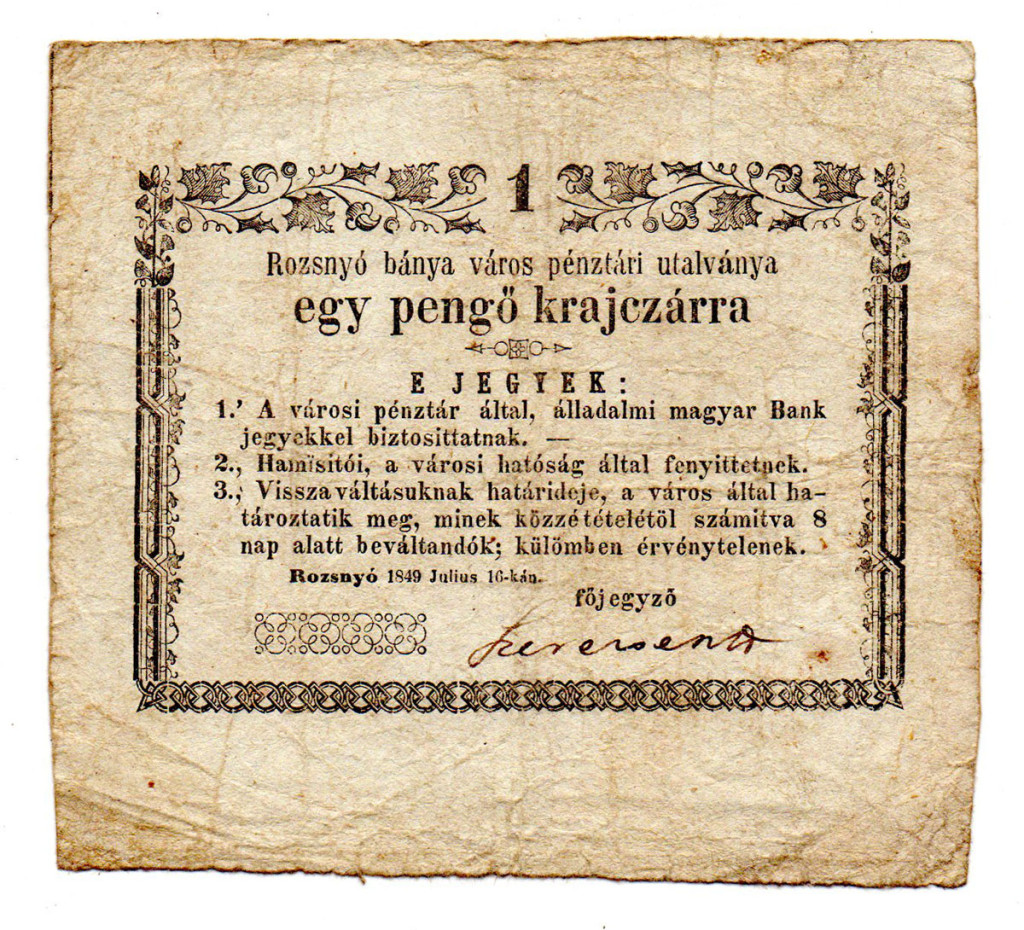 1
Rozsnyó bánya város pénztári utalványa
egy pengő krajczárra
E JEGYEK:
1.' A városi pénztár által, álladalmi magyar Bank
jegyekkel biztosittatnak. —
2., Hamisitói, a városi hatóság által fenyittetnek.
3., Visszaváltásuknak határideje, a város által ha-
tároztatik meg, minek közzétételétöl számitva 8
nap alatt beváltandók; külömben érvénytelenek.
Rozsnyó 1849 Julius 16-kán.
főjegyző